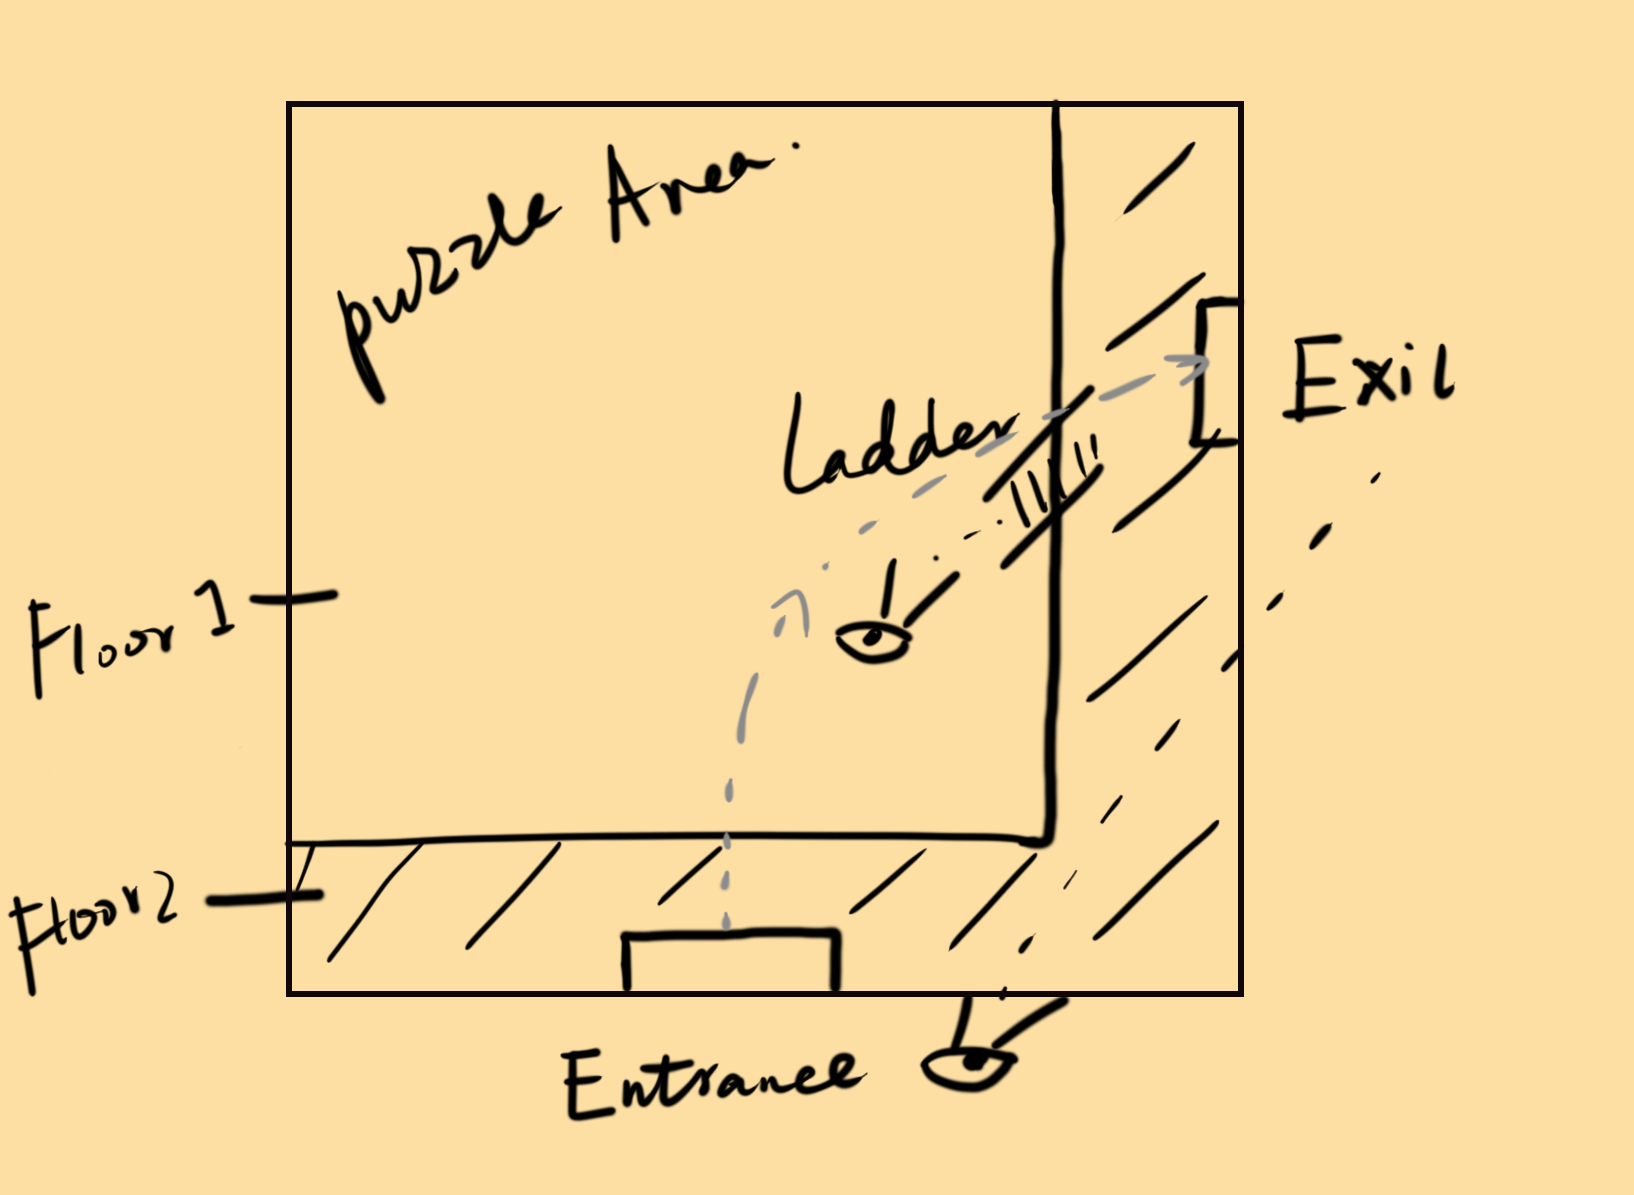 puzzle Area.
Exit
Ladder
Floor 1
Floor 2
Entrance